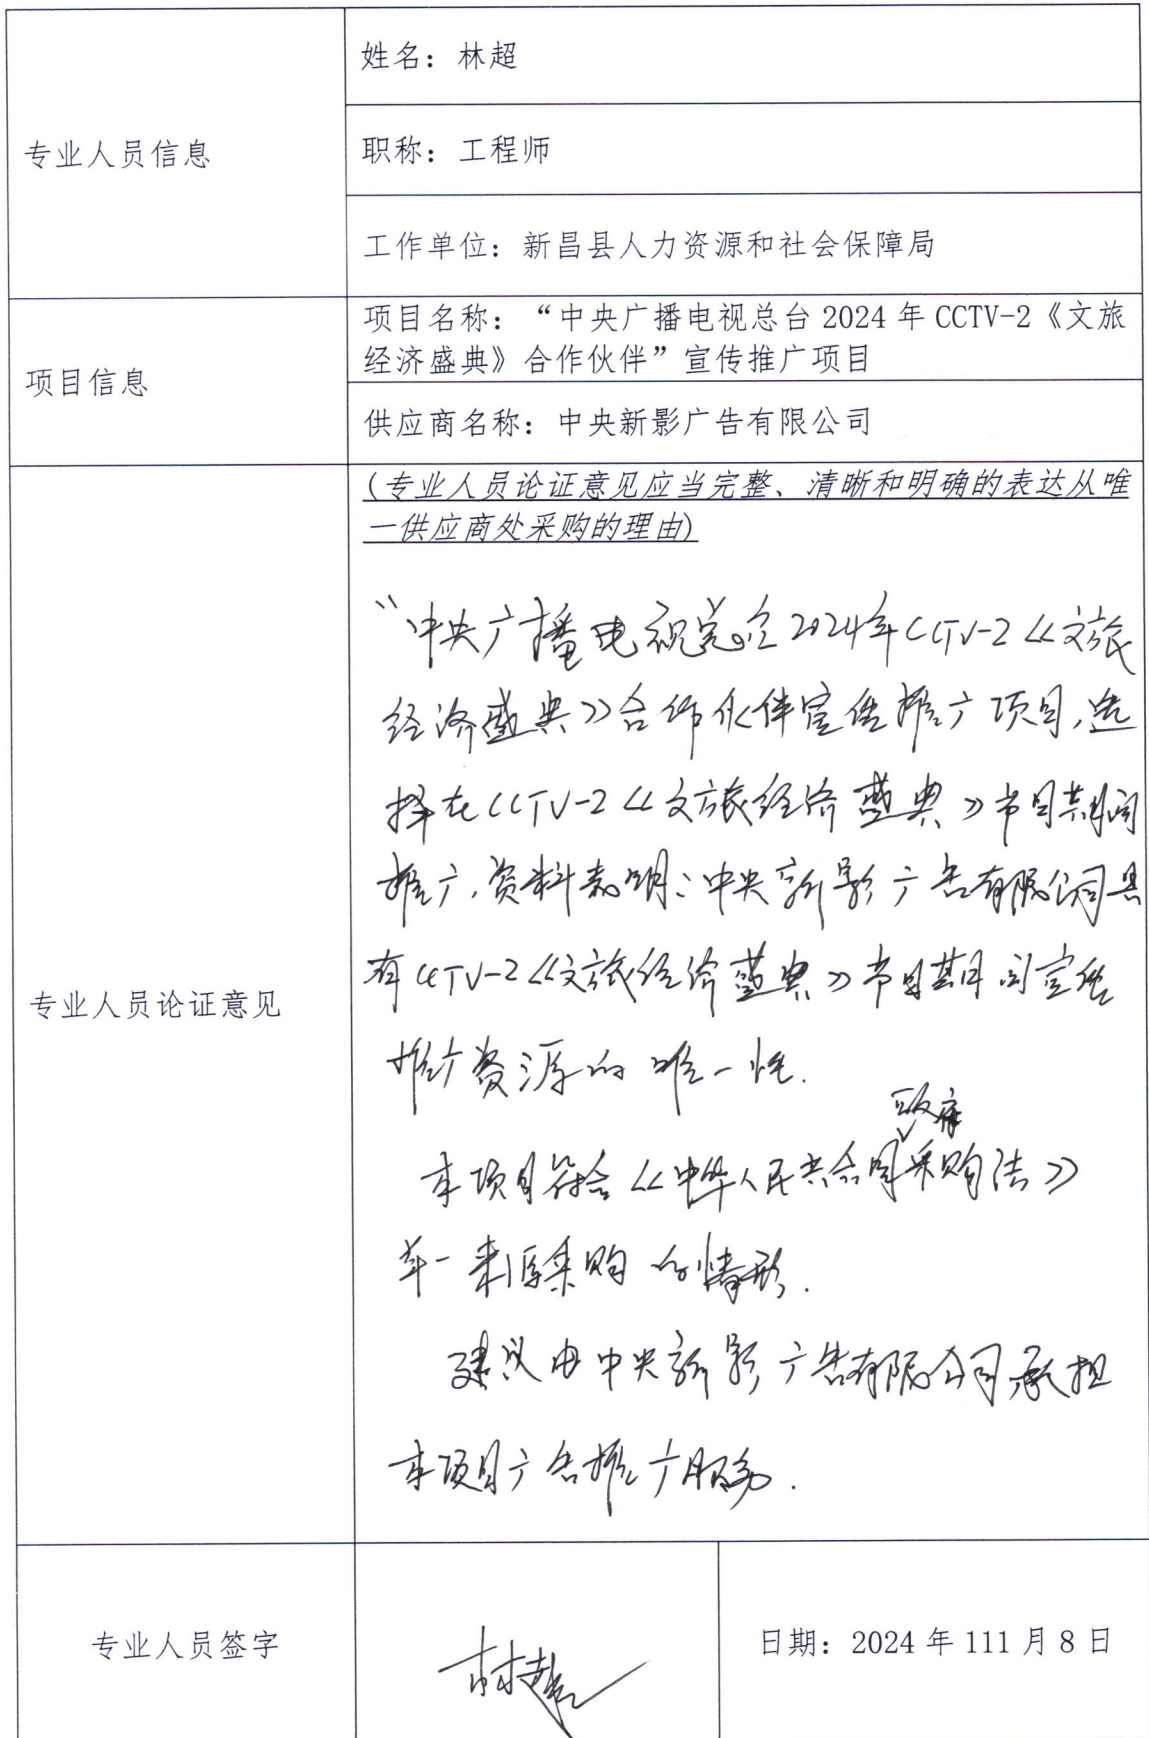 专业人员信息
姓名：林超
职称：工程师
工作单位：新昌县人力资源和社会保障局
项目信息
项目名称：“中央广播电视总台 2024 年 CCTV-2《文旅
经济盛典》合作伙伴”宣传推广项目
供应商名称：中央新影广告有限公司
专业人员论证意见
(专业人员论证意见应当完整、清晰和明确的表达从唯
一供应商处采购的理由)
“中央广播电视总台2024年CCTV-2《文旅
经济盛典》合作伙伴宣传推广项目，选
择在CCTV-2《文旅经济盛典》节目期间
推广，资料表明：中央新影广告有限公司具
有CCTV-2《文旅经济盛典》节目期间宣传
推广资源的唯一性.
本项目符合《中华人民共和国政府采购法》
单一来源采购的情形.
建议由中央新影广告有限公司承担
本项目广告推广服务.
专业人员签字
林超
日期：2024 年 111 月 8 日